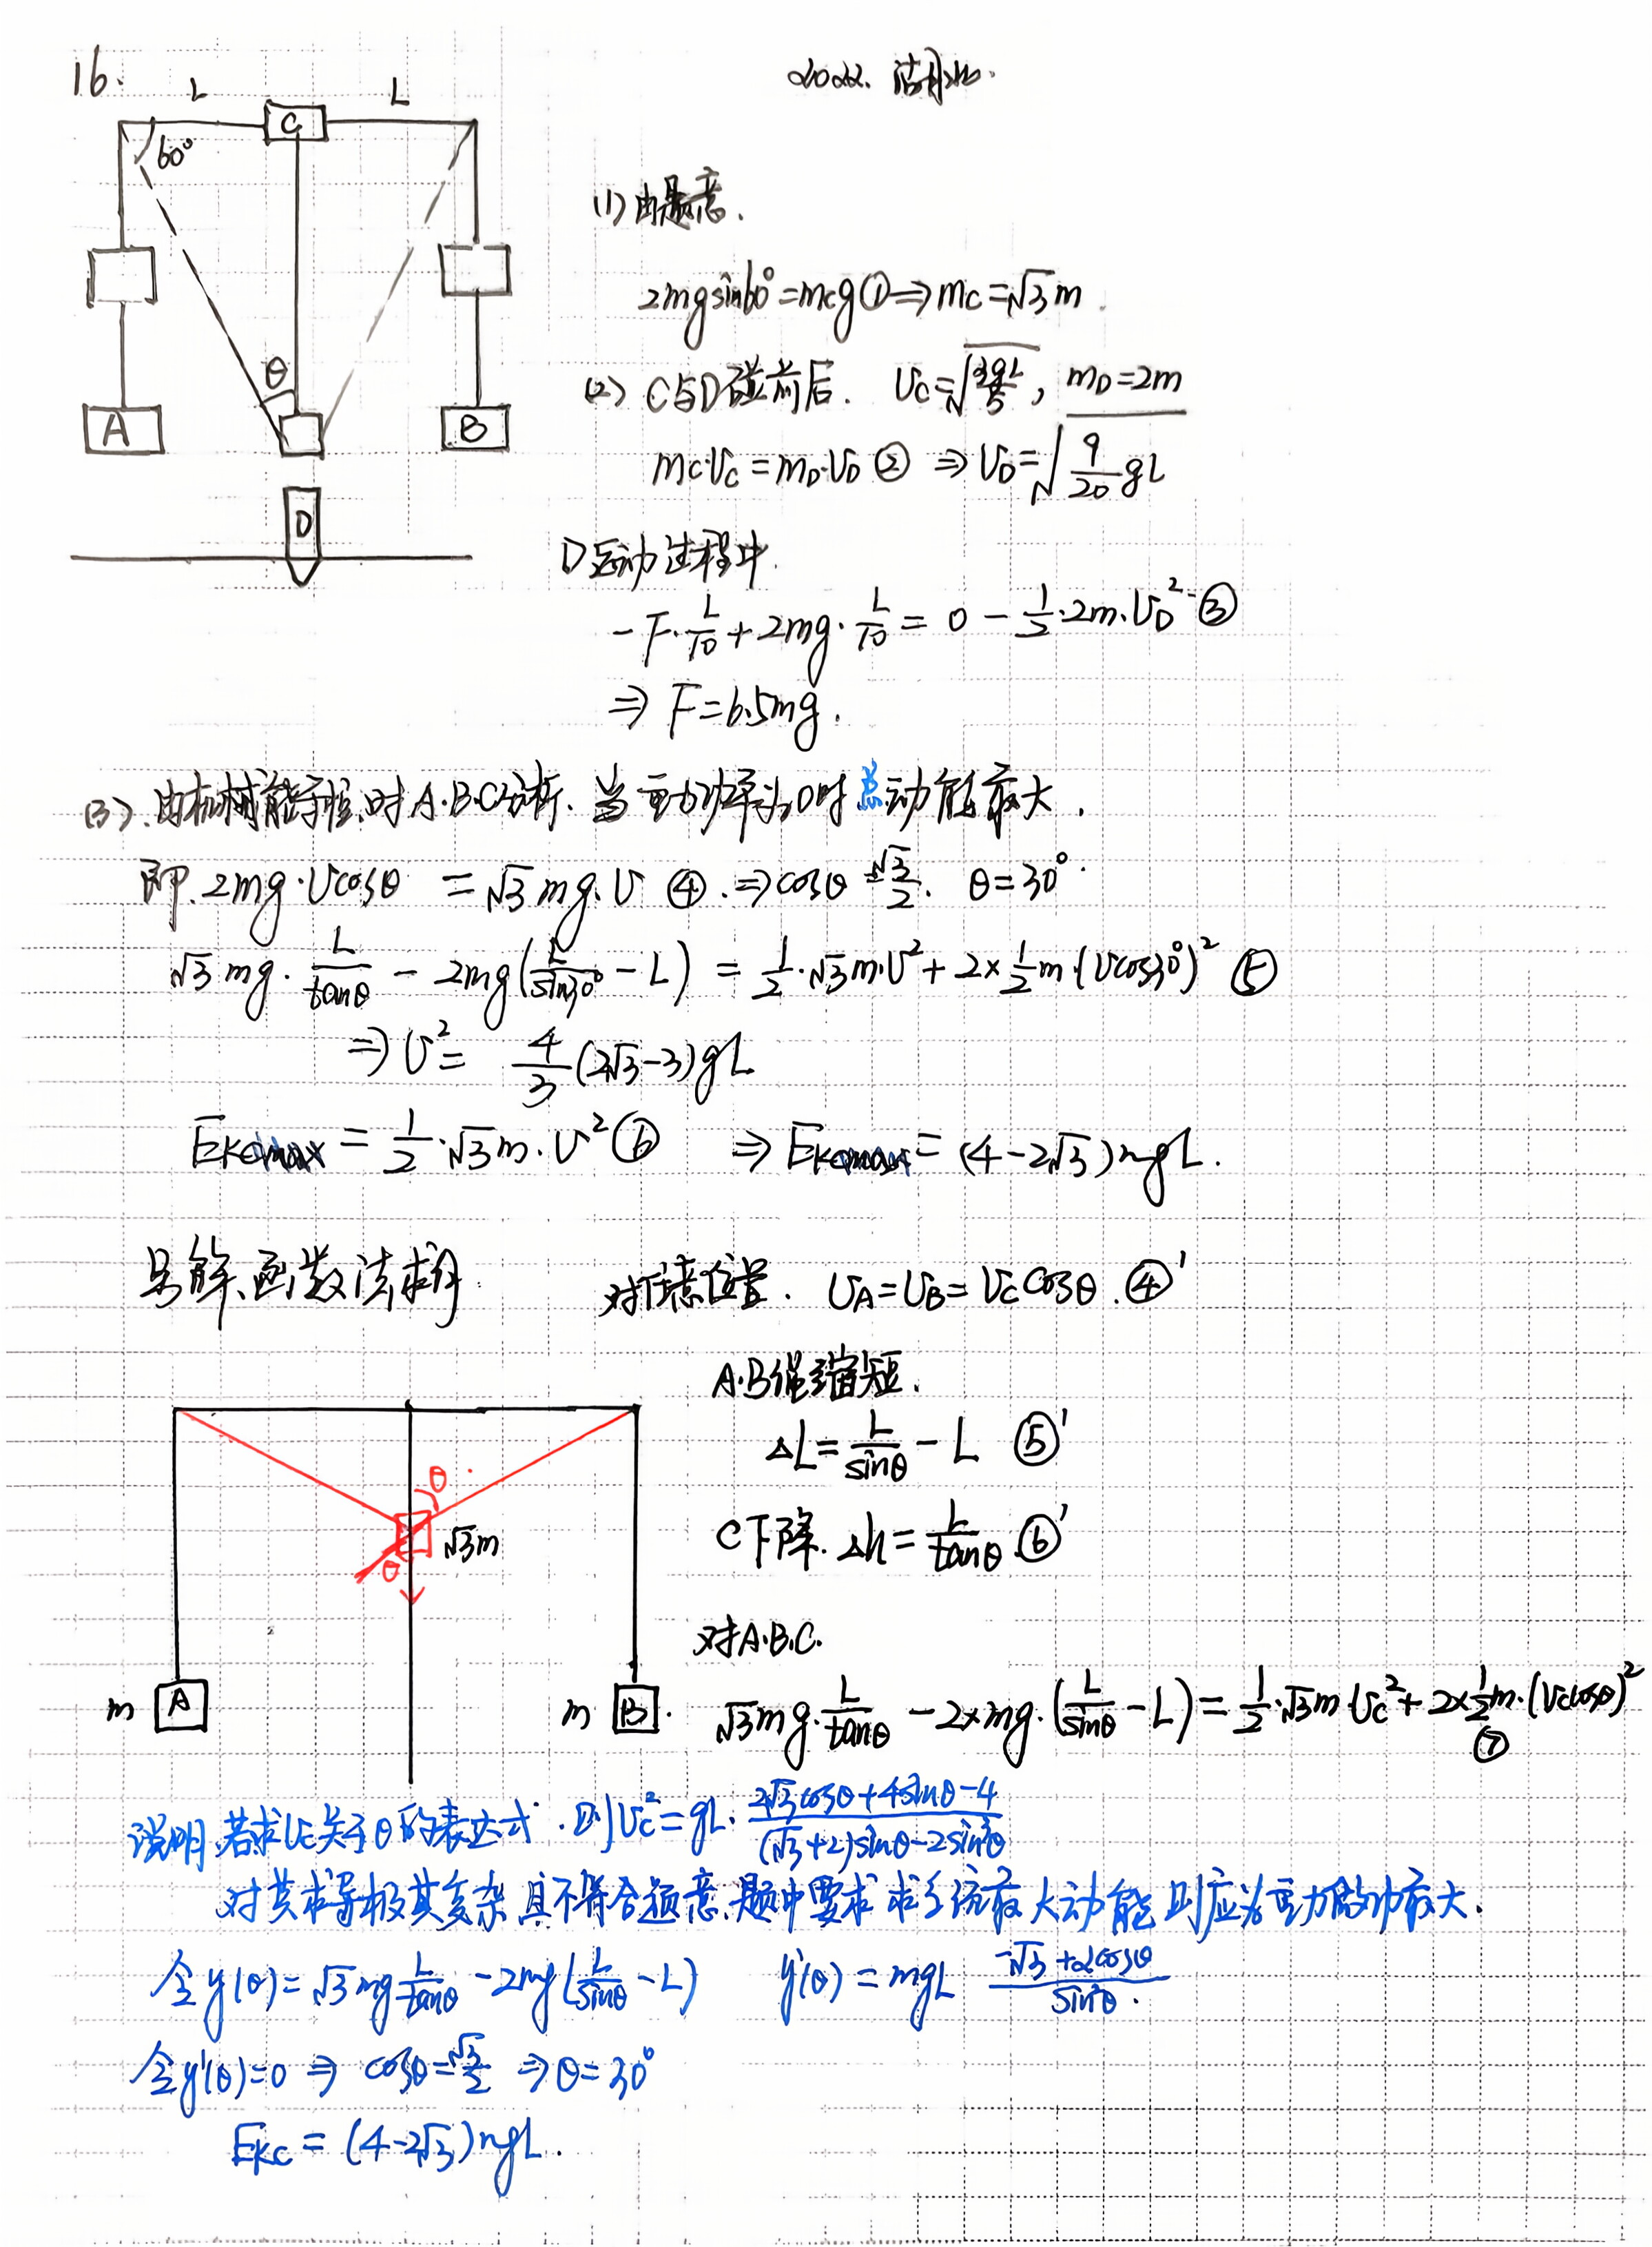 16.
2022. 湖北.
L L
C
60°
θ
A B
D
(1) 由题意.
2mgsin60°=mcg ① ⇒ mc=√3m.
(2) C与D碰前后. Uc=√(3gL/5), mD=2m
mc·Uc=mD·UD ② ⇒ UD=√(9/20 gL)
D运动过程中.
-F·L/10+2mg·L/10=0-1/2·2m·UD² ③
⇒ F=6.5mg.
(3). 由机械能守恒, 对A.B.C分析. 当重力功率为0时总动能最大.
即. 2mg·Ucosθ =√3mg·U ④. ⇒cosθ=√3/2. θ=30°.
√3mg·L/tanθ - 2mg(L/sin30° - L) = 1/2·√3m·U²+2×1/2m·(Ucos30°)² ⑤
⇒ U²= 4/3(2√3-3)gL
Ekcmax = 1/2·√3m·U² ⑥ ⇒ Ekcmax=(4-2√3)mgL.
另解、函数法求解. 对任意位置. UA=UB=Uccosθ. ④'
A.B绳缩短.
ΔL=L/sinθ - L ⑤'
θ
C下降. Δh=L/tanθ ⑥'
√3m
θ
对A.B.C.
m A m B
√3mg·L/tanθ - 2×mg·(L/sinθ - L)=1/2·√3m·Uc²+2×1/2m·(Uccosθ)² ⑦
说明, 若求Uc关于θ的表达式. 则Uc²=gL·(2√3cosθ+4sinθ-4)/((√3+2)sinθ-2sin³θ)
对其求导极其复杂且不符合题意, 题中要求求系统最大动能则应为重力做功最大.
令y(θ)=√3mg L/tanθ - 2mg(L/sinθ - L) y'(θ)=mgL (-√3+2cosθ)/sin²θ.
令y'(θ)=0 ⇒ cosθ=√3/2 ⇒θ=30°
Ekc=(4-2√3)mgL.